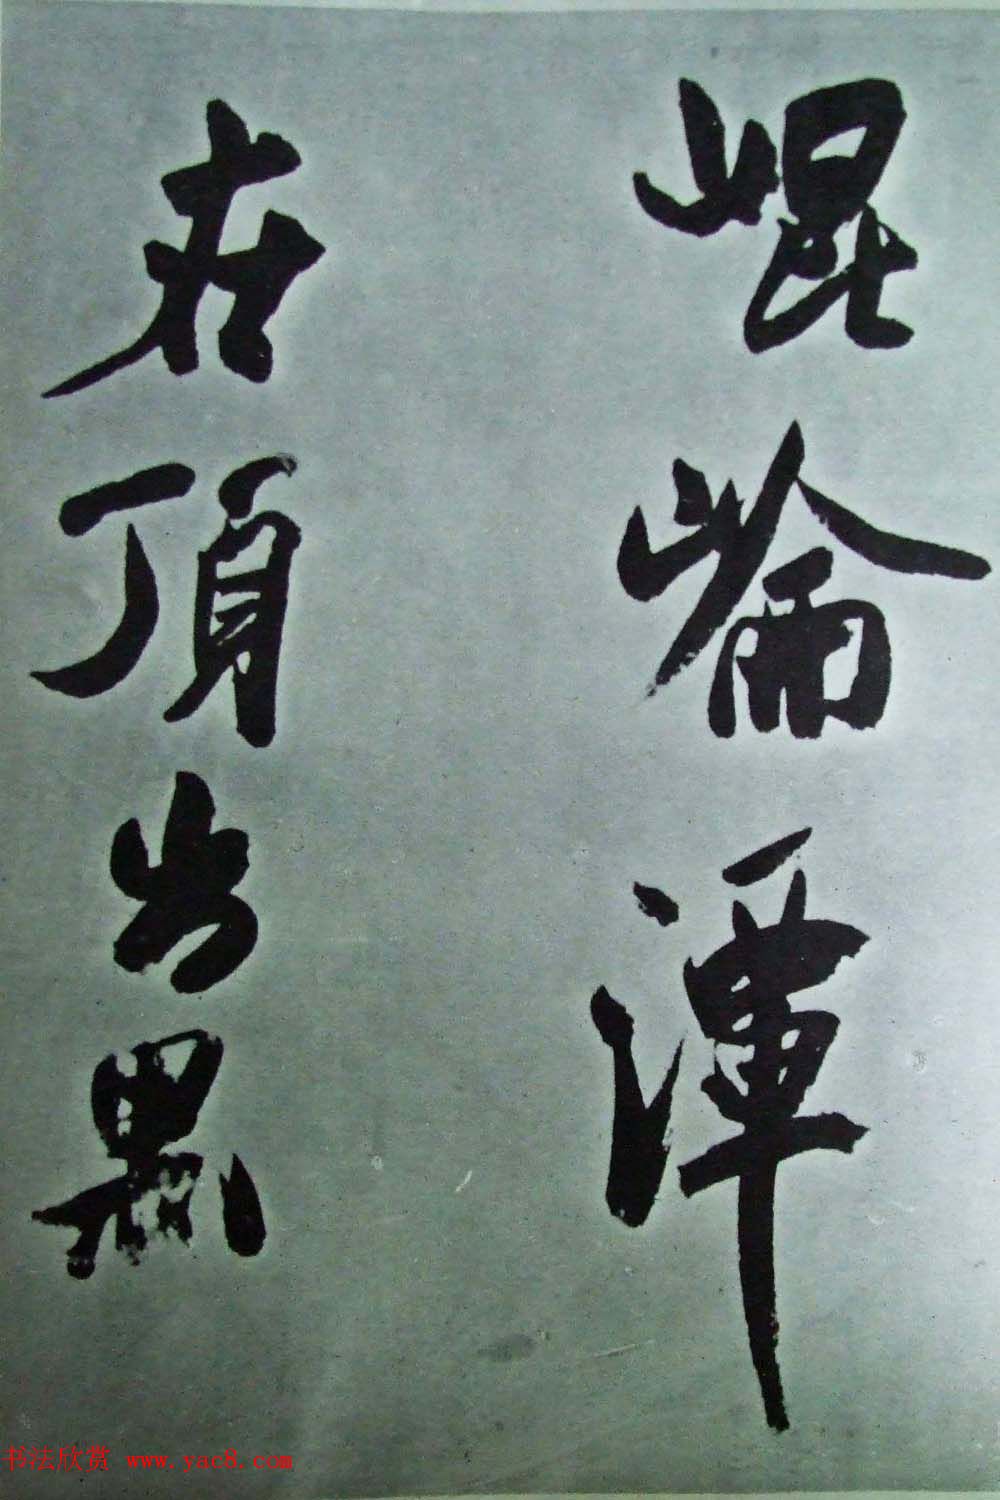 崐崘潭
在頂出黑
书法欣赏 www.yac8.com